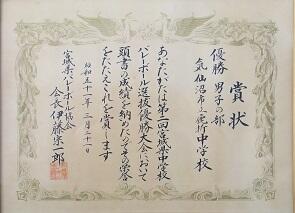 賞状
優勝 男子の部
気仙沼市立鹿折中学校
あなたがたは第一回宮城県中学校
バレーボール選抜優勝大会において
頭書の成績を納めたのでその栄誉
をたたえこれを賞します
昭和五十一年三月二十一日
宮城県バレーボール協会
会長 伊藤宗一郎